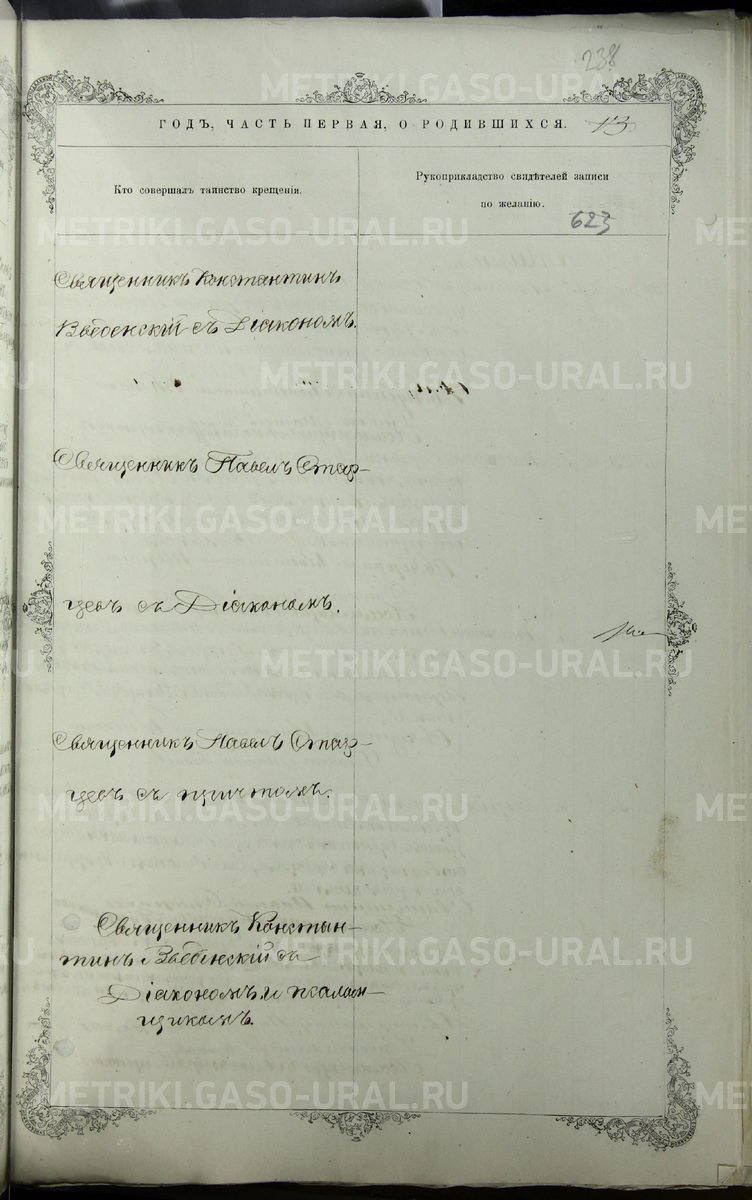 238
ГОДЪ, ЧАСТЬ ПЕРВАЯ, О РОДИВШИХСЯ.
Кто совершалъ таинство крещенія.
Рукоприкладство свидѣтелей записи
по желанію.
623
Священникъ Константинъ
Введенскій съ Діакономъ.
Священникъ Павелъ Стар-
цевъ съ Діакономъ.
Священникъ Павелъ Стар-
цевъ съ причтомъ.
Священникъ Констын-
тинъ Введенскій съ
Діакономъ и псалом-
щикомъ.
METRIKI.GASO-URAL.RU